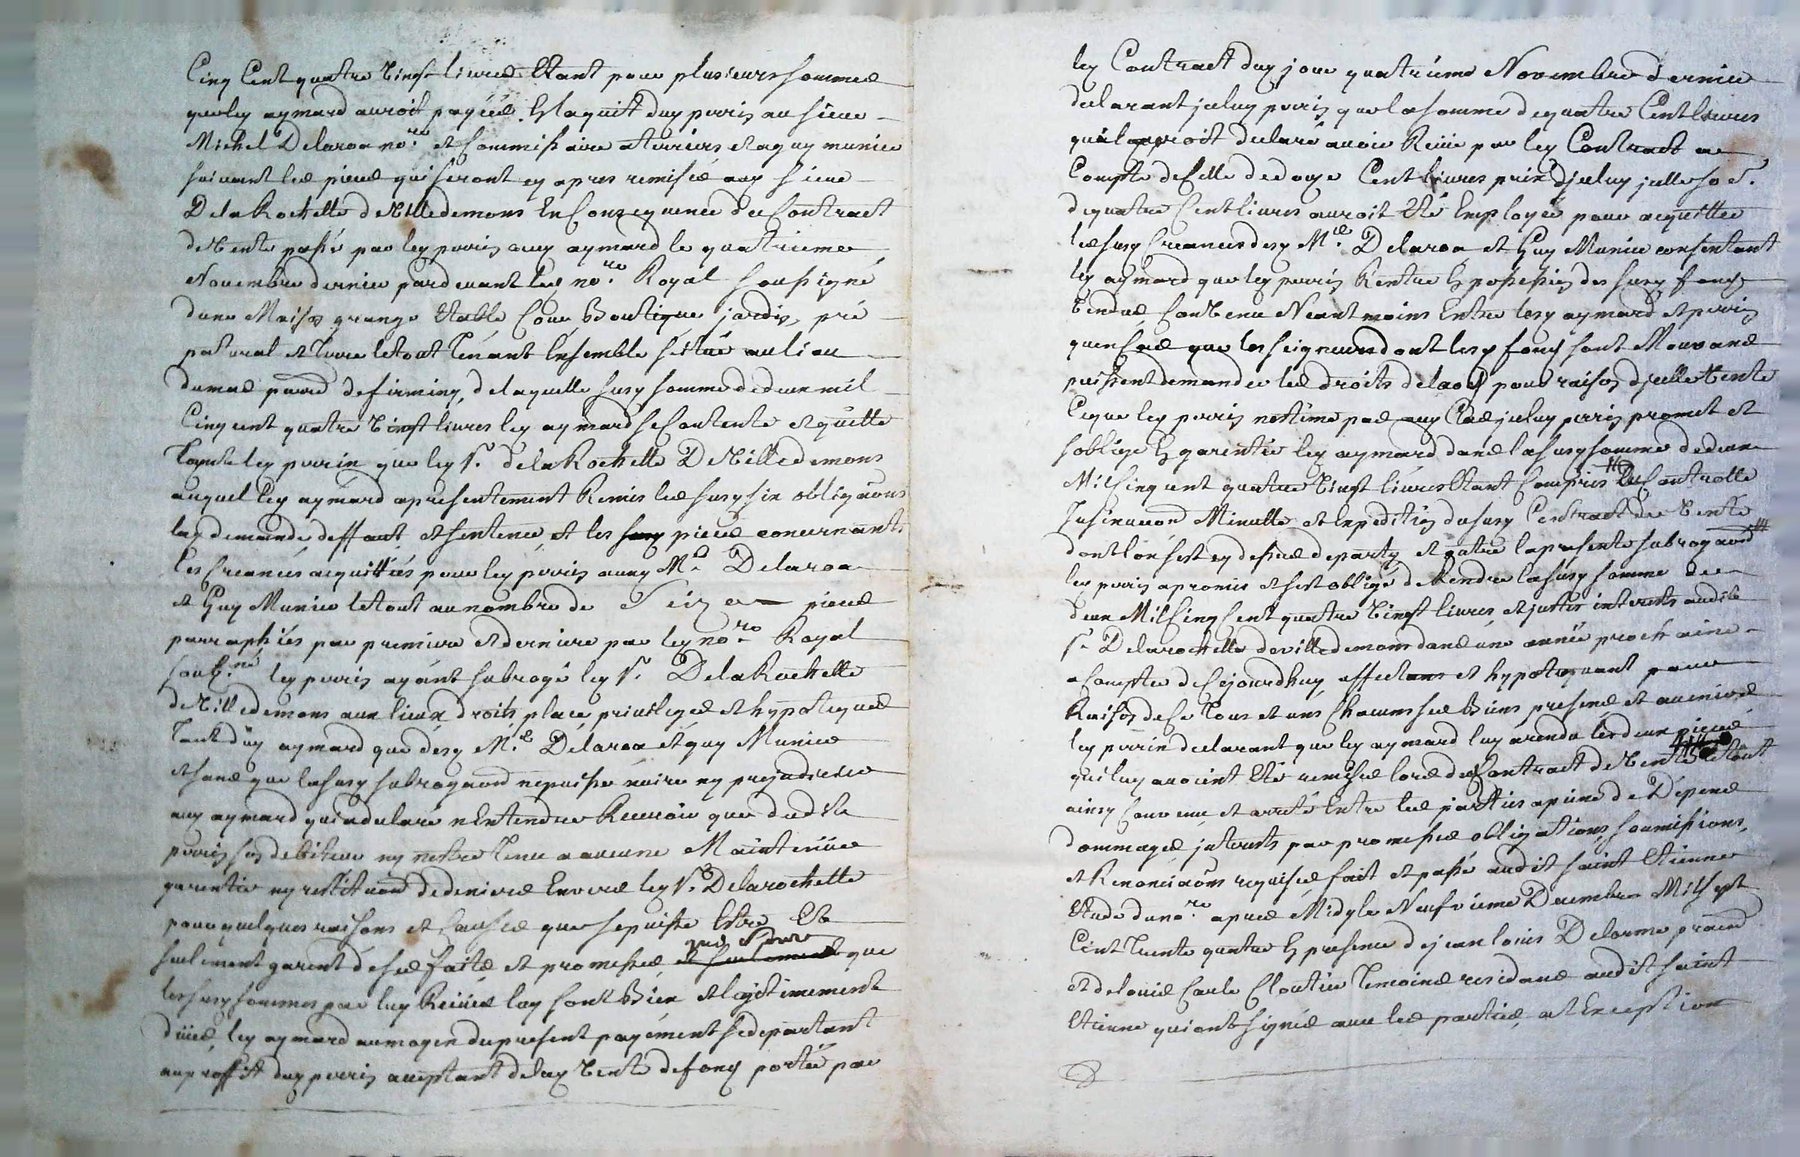 Cinq Cent quatre Vingt livres Etant pour plusieurs sommes
que ley aymard auroit payées Et laquit duy perrin au sieur
Michel Delaroa no.re et Commissaire aterriers et a guy munier
suivant les pieces qui seront cy apres remises auy sieur
De la Rochette de Villedemons En Consequence du Contract
de Vente passé par ley perrin auy aymard le quatrieme
Novembre dernier pardevant ley no.re Royal soussigné
dune Maison grange Etable Cour Boutique jardin, pré
patural et Terre le tout Tenant Ensemble scitué au lieu
dumas parr. de firminy, de laquelle susy somme de deux mil
Cinq cent quatre Vingt livres ley aymard se Contente et quitte
ley perrin que ley Sr. de la Rochette De Villedemons
auquel ley aymard a presentement Remis les susy six obligaôns
demande deffaut et sentence et les pieces concernants
les Creances acquittées pour ley perrin auxy M.e Delaroa
et Guy Munier le tout au nombre de Seize pieces
parraphées par premiere et derniere par ley no.re Royal
soub.né ley perrin ayant subrogé ley Sr. De la Rochette
de Villedemons aux lieux droits place privileges et hypoteques
Tant duy aymard que desy M.e Delaroa et guy Munier
et sans que la susy subrogaôn ne puisse nuire ny prejudicier
auy aymard qui a declaré n'Entendre Recevoir que dudit
perrin son debiteur ny nestre Tenu a aucune Maintenüe
garentie ny restitution de deniers Envers ley Sr. Delarochette
pour quelques raisons et Causes que se puisse Estre Et
seulement garent de ses faits et promesses que
les susy sommes par luy Reçües luy sont Bien et legitimement
düees, ley aymard au moyen du present payement se departant
au proffit duy perrin acceptant de lay Vente de fony portée par
ley Contract duy jour quatriéme Novembre dernier
declarant jceluy perrin que la somme de quatre Cent livres
quil auroit declaré avoir Reçüe par ley Contract a
Compte de Celle de douze Cent livres prix djceluy jcelle so.e
de quatre Cent livres auroit Eté Employée pour acquitter
les susy Creances desy M.e Delaroa et Guy Munier consentant
ley aymard que ley perrin Rentre En possession des susy fony
Vendus Convenu Neantmoins Entre lesy aymard et perrin
quen Cas que les seigneurs dont lesy fony sont Mouvans
puissent demander les droits de laod pour raison djcelle Vente
Ceque ley perrin nestime pas auy Cas jceluy perrin promet et
soblige En garentir ley aymard dans la susy somme de deux
Mil Cinq cent quatre Vingt livres Etant Compris Le Controlle
Insinuaôn Minutte et Expedition du susy Contract de Vente
dont lon sest cy dessus departy et outre la presente subrogaôn
ley perrin a promis et sest obligé de Rendre la susy somme de
deux Mil Cinq Cent quatre Vingt livres et justes interests audit
Sr. Delarochette de villedemons dans une année prochaine
a Compter de Cejourdhuy affectant et hypotequant pour
Raison de Ce Tous et uns Chacuns ses Biens presens et avenirs
ley perrin declarant que ley aymard luy a rendu les deux pieces
qui luy avoient Eté remises lors du Contract de Vente le tout
ainsy Convenu et arreté Entre les parties a peine de Dépens
dommages jnterests par promesses obligations, soumissions,
et Renonciaôns requises fait et passé audit saint Etienne
Etude du no.re apres Midy le Neufvieme Decembre Mil sept
Cent Trente quatre En presence de jean louis Delorme
et de louis Carle Cloutier Temoins residans audit saint
Etienne qui ont signés avec les parties, a lException